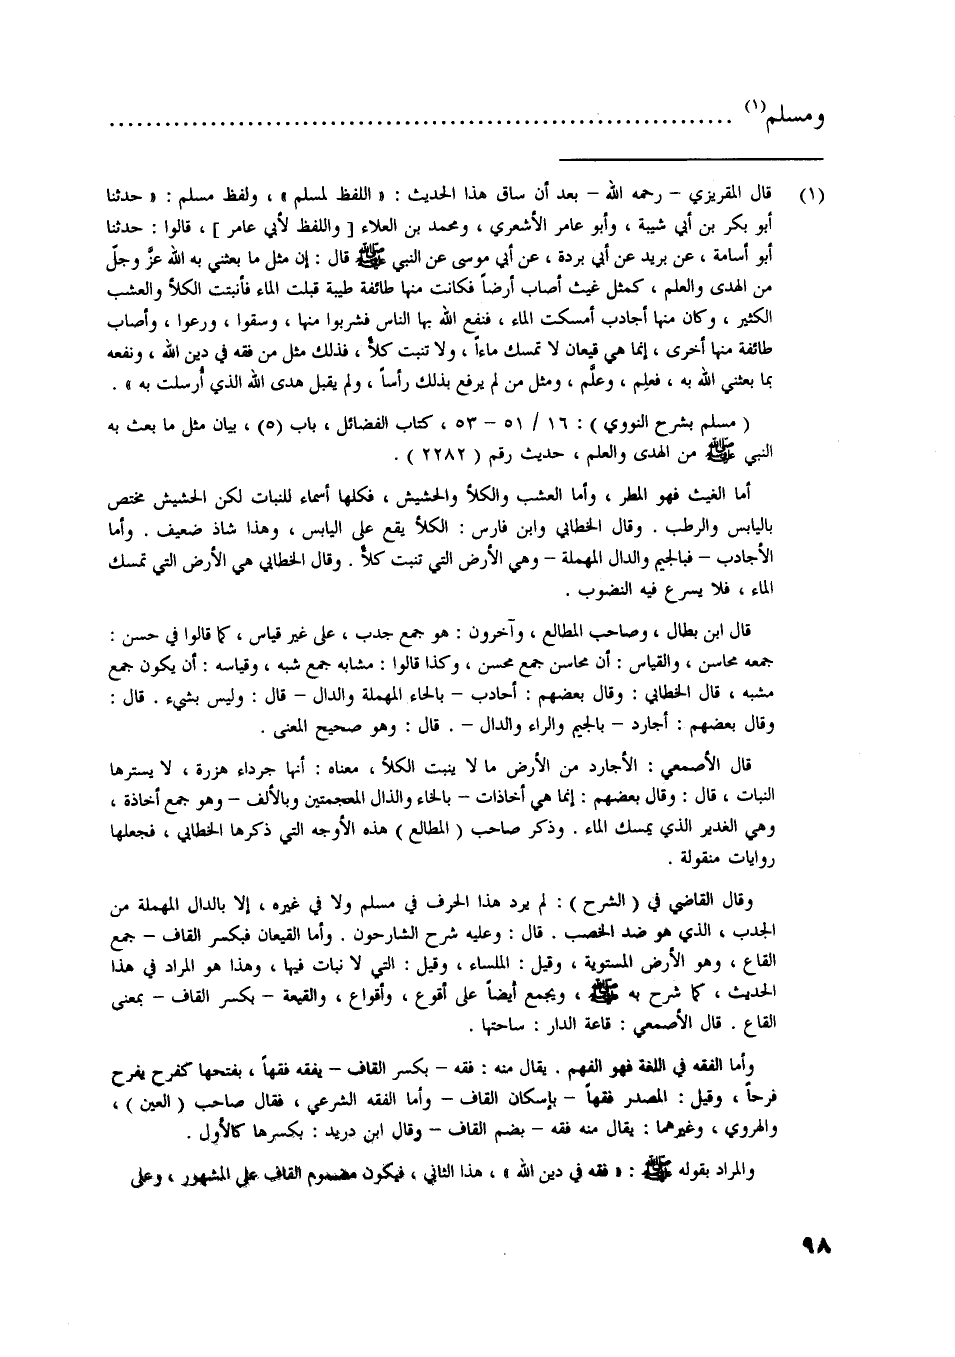 ومسلم(١) ................................................................
(١) قال المقريزي – رحمه الله – بعد أن ساق هذا الحديث : « اللفظ لمسلم » ، ولفظ مسلم : « حدثنا
أبو بكر بن أبي شيبة ، وأبو عامر الأشعري ، ومحمد بن العلاء [ واللفظ لأبي عامر ] ، قالوا : حدثنا
أبو أسامة ، عن بريد عن أبي بردة ، عن أبي موسى عن النبي ﷺ قال : إن مثل ما بعثني به الله عزَّ وجلّ
من الهدى والعلم ، كمثل غيث أصاب أرضاً فكانت منها طائفة طيبة قبلت الماء فأنبتت الكلأ والعشب
الكثير ، وكان منها أجادب أمسكت الماء ، فنفع الله بها الناس فشربوا منها ، وسقوا ، ورعوا ، وأصاب
طائفة منها أخرى ، إنما هي قيعان لا تمسك ماءاً ، ولا تنبت كلأً ، فذلك مثل من فقه في دين الله ، ونفعه
بما بعثني الله به ، فعلِم ، وعلَّم ، ومثل من لم يرفع بذلك رأساً ، ولم يقبل هدى الله الذي أُرسلت به » .
( مسلم بشرح النووي ) : ١٦ / ٥١ – ٥٣ ، كتاب الفضائل ، باب (٥) ، بيان مثل ما بعث به
النبي ﷺ من الهدى والعلم ، حديث رقم ( ٢٢٨٢ ) .
أما الغيث فهو المطر ، وأما العشب والكلأ والحشيش ، فكلها أسماء للنبات لكن الحشيش مختص
باليابس والرطب . وقال الخطابي وابن فارس : الكلأ يقع على اليابس ، وهذا شاذ ضعيف . وأما
الأجادب – فبالجيم والدال المهملة – وهي الأرض التي تنبت كلأً . وقال الخطابي هي الأرض التي تمسك
الماء ، فلا يسرع فيه النضوب .
قال ابن بطال ، وصاحب المطالع ، وآخرون : هو جمع جدب ، على غير قياس ، كما قالوا في حسن :
جمعه محاسن ، والقياس : أن محاسن جمع محسن ، وكذا قالوا : مشابه جمع شبه ، وقياسه : أن يكون جمع
مشبه ، قال الخطابي : وقال بعضهم : أحادب – بالحاء المهملة والدال – قال : وليس بشيء . قال :
وقال بعضهم : أجارد – بالجيم والراء والدال – . قال : وهو صحيح المعنى .
قال الأصمعي : الأجارد من الأرض ما لا ينبت الكلأ ، معناه : أنها جرداء هزرة ، لا يسترها
النبات ، قال : وقال بعضهم : إنما هي أخاذات – بالخاء والذال المعجمتين وبالألف – وهو جمع أخاذة ،
وهي الغدير الذي يمسك الماء . وذكر صاحب ( المطالع ) هذه الأوجه التي ذكرها الخطابي ، فجعلها
روايات منقولة .
وقال القاضي في ( الشرح ) : لم يرد هذا الحرف في مسلم ولا في غيره ، إلا بالدال المهملة من
الجدب ، الذي هو ضد الخصب . قال : وعليه شرح الشارحون . وأما القيعان فبكسر القاف – جمع
القاع ، وهو الأرض المستوية ، وقيل : الملساء ، وقيل : التي لا نبات فيها ، وهذا هو المراد في هذا
الحديث ، كما شرح به ﷺ ، ويجمع أيضاً على أقوع ، وأقواع ، والقيعة – بكسر القاف – بمعنى
القاع . قال الأصمعي : قاعة الدار : ساحتها .
وأما الفقه في اللغة فهو الفهم . يقال منه : فقه – بكسر القاف – يفقه فقهاً ، بفتحها كفرح يفرح
فرحاً ، وقيل : المصدر فقهاً – بإسكان القاف – وأما الفقه الشرعي ، فقال صاحب ( العين ) ،
والهروي ، وغيرهما : يقال منه فقه – بضم القاف – وقال ابن دريد : بكسرها كالأول .
والمراد بقوله ﷺ : « فقه في دين الله » ، هذا الثاني ، فيكون مضموم القاف على المشهور ، وعلى
٩٨